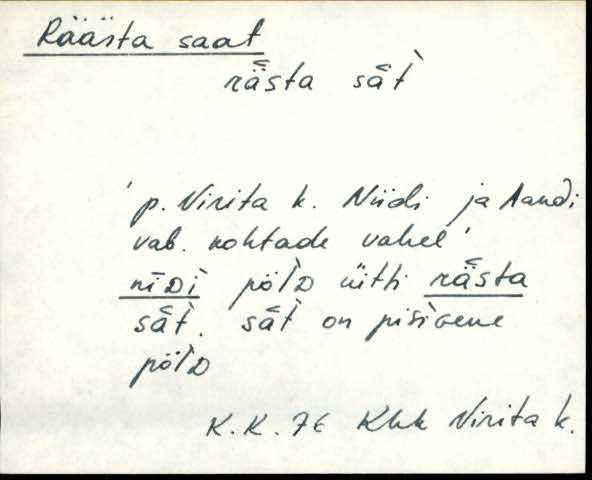 Räästa saat
rästa sàt̀
'p. Virita k. Niidi ja Aandi
vab. kohtade vahel'
nīDì põlD üitti rästa
sàt̀. sàt̀ on pisìkene
põlD
K.K. 76 Khk Virita k.